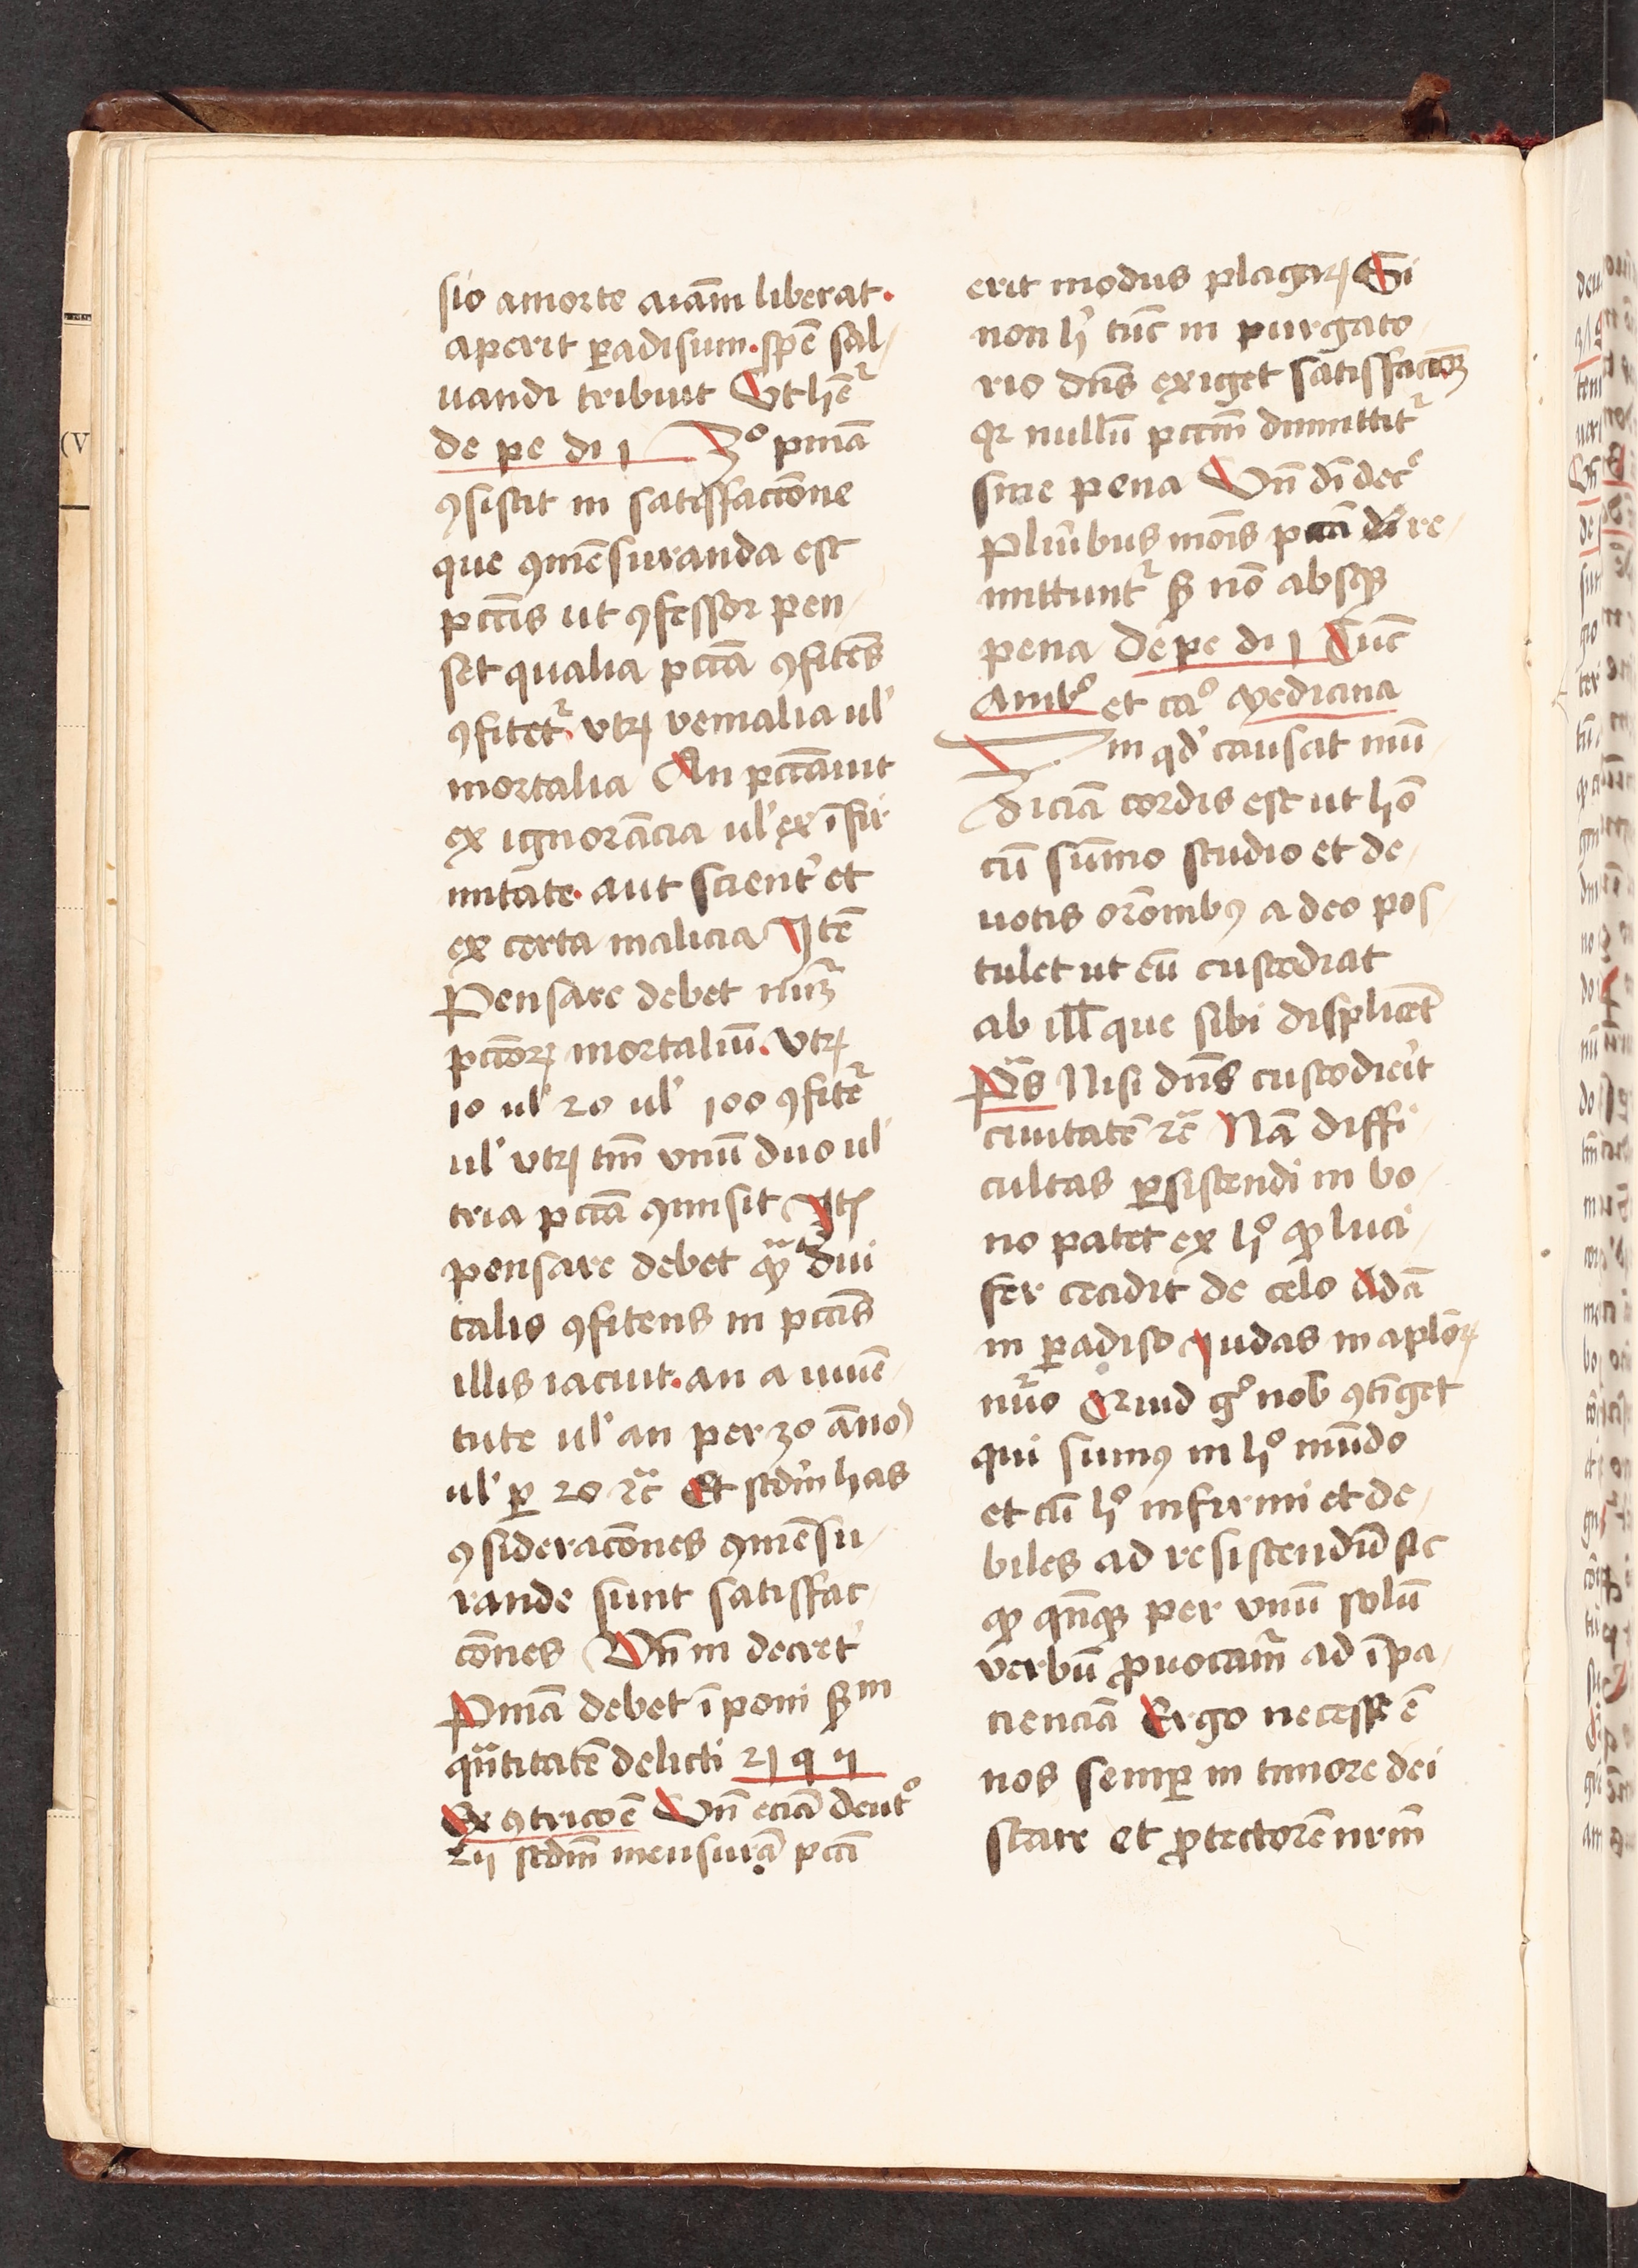 sio a morte aīam liberat.
aperit ꝑadisum. spē sal
uandi tribuit Vt hētᷣ
de pe di 1 3º pn̄ia
ꝯsistit in satisfactōne
que ꝯmēsuranda est
pctīs ut ꝯfessor pen
set qualia pctā ꝯfitēs
ꝯfitetᷣ. vtꝝ venialia ulʼ
mortalia An pctāuit
ex ignorācia ulʼ ex īfir
mitate. aut scientʼ et
ex certa malicia Jtē
Pensare debet nūꝝ
pctōꝝ mortaliū. vtꝝ
10 ulʼ 20 ulʼ 100 ꝯfitetᷣ
ulʼ vtꝝ tm̄ vnū duo ulʼ
tria pctā ꝯmisit Jtē
pensare debet qͣ diu
talis ꝯfitens in pctīs
illis iacuit. an a iuuē
tute ulʼ an per 30 āno
ulʼ ꝑ 20 ꝛc̄ Et scdm̄ has
ꝯsideracōnes ꝯmēsu
rande sunt satisfac
cōnes Vn̄ in decretʼ
Pn̄ia debet īponi scdm
qͣntitatē delicti 21 q 11
Ex ꝯtricōe Vn̄ eciā deutº
25 scdm̄ mensurā pctī
erit modus plagaꝝ Si
non hʼ tūc in purgato
rio dn̄s exiget satisfactōem
qꝛ nullū pctm̄ dimittitᷣ
sine pena Vn̄ dī decʼ
Pluribus mōis pctā re
mittuntᷣ sꝫ nō absqꝫ
pena de pe di 1 Tūc
Ambº et caº Medicina
In qdʼ causat mū
diciā cordis est ut hō
cū sūmo studio et de
uotis orōnibꝰ a deo pos
tulet ut eū custodiat
ab ill̄ que sibi displicēt
Pͣs Nisi dn̄s custodierit
ciuitatē ꝛc̄ Nā diffi
cultas ꝑsistendi in bo
no patet ex hº qꝫ luci
fer cecidit de celo Adā
in ꝑadiso Judas in apl̄oꝝ
nūo Quid gº nob̄ ꝯtīget
qui sumꝰ in hº mūdo
et cū hº infirmi et de
biles ad resistendū sic
qꝫ qn̄qꝫ per vnū solū
verbū ꝓuocamᷣ ad īpa
cienciā Ergo necesse ē
nos semꝑ in timore dei
stare et ꝓtectorē nrm̄